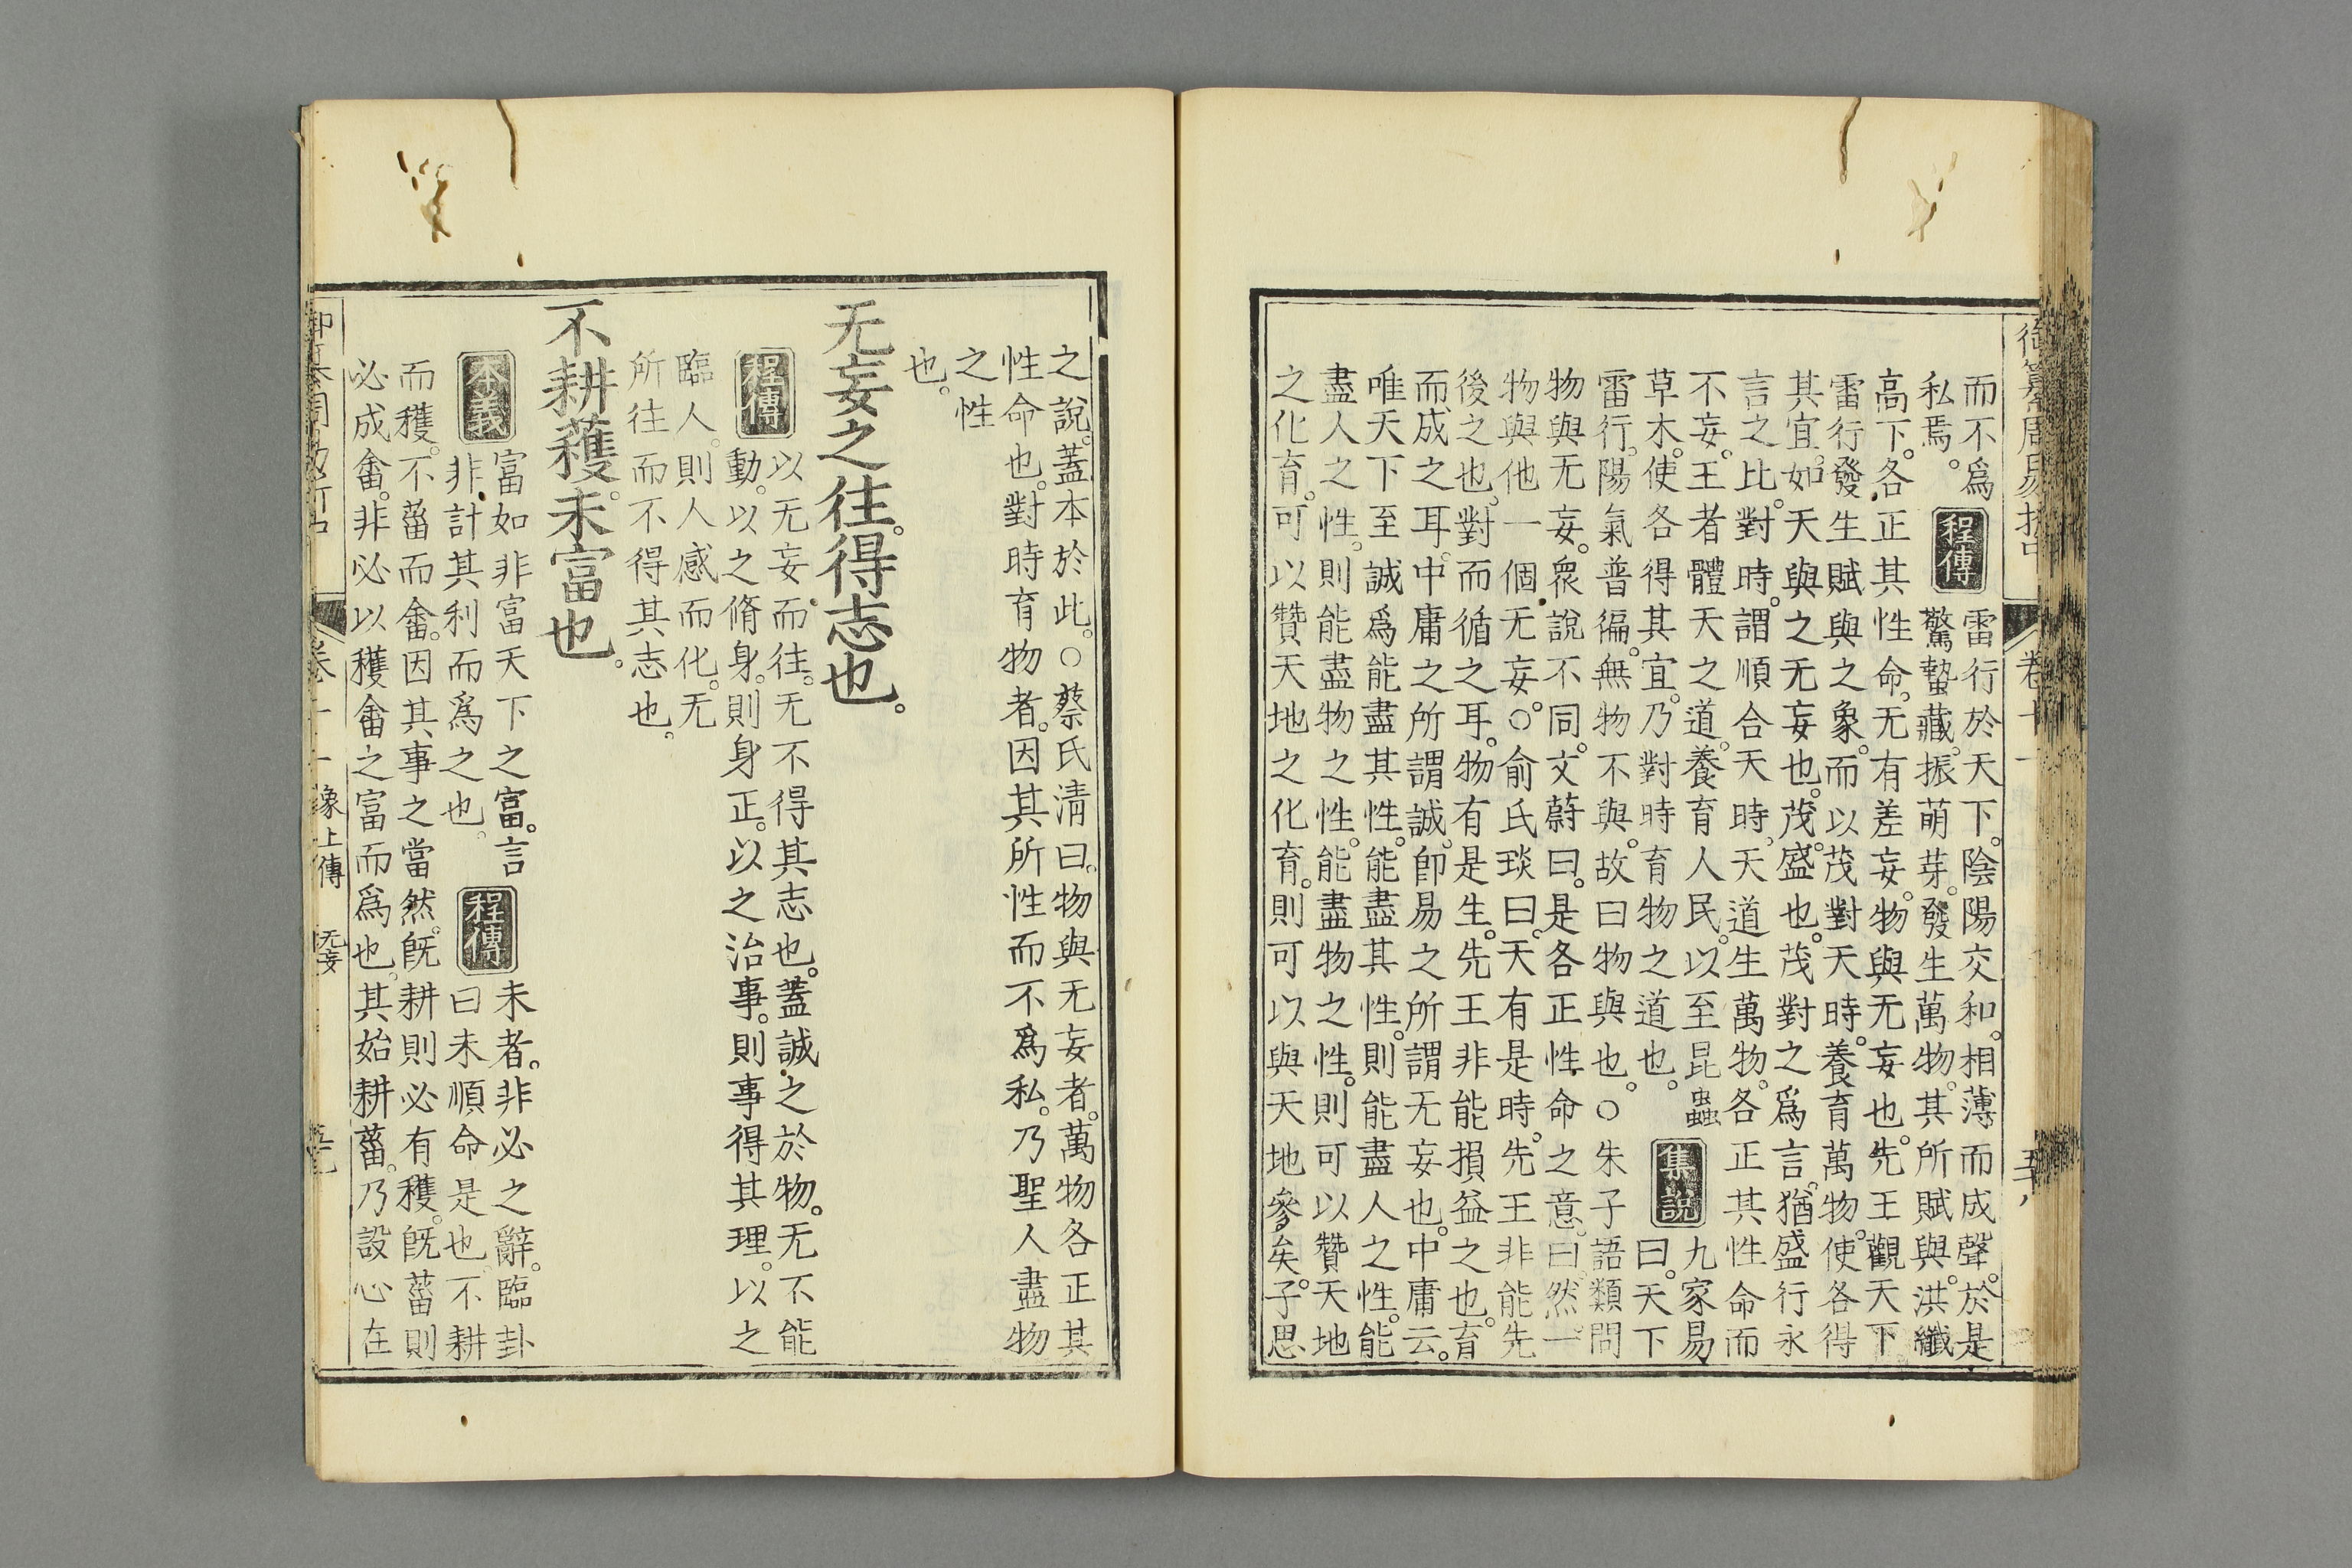 御纂周易折中 卷十一
而不爲
私焉。
程傳
雷行於天下。陰陽交和。相薄而成聲。於是
驚蟄藏。振萌芽。發生萬物。其所賦與。洪纖
高下。各正其性命。无有差妄。物與无妄也。先王觀天下
雷行發生賦與之象。而以茂對天時。養育萬物。使各得
其宜。如天與之无妄也。茂。盛也。茂對之爲言。猶盛行永
言之比。對時。謂順合天時。天道生萬物。各正其性命而
不妄。王者體天之道。養育人民。以至昆蟲
草木。使各得其宜。乃對時育物之道也。
集說
九家易
曰。天下
雷行。陽氣普徧。無物不與。故曰物與也。○朱子語類問
物與无妄。衆說不同。文蔚曰。是各正性命之意。曰。然。一
物與他一個无妄。○俞氏琰曰。天有是時。先王非能先
後之也。對而循之耳。物有是生。先王非能損益之也。育
而成之耳。中庸之所謂誠。卽易之所謂无妄也。中庸云。
唯天下至誠爲能盡其性。能盡其性。則能盡人之性。能
盡人之性。則能盡物之性。能盡物之性。則可以贊天地
之化育。可以贊天地之化育。則可以與天地參矣。子思
之說。蓋本於此。○蔡氏淸曰。物與无妄者。萬物各正其
性命也。對時育物者。因其所性而不爲私。乃聖人盡物
之性
也。
无妄之往。得志也。
程傳
以无妄而往。无不得其志也。蓋誠之於物。无不能
動。以之脩身。則身正。以之治事。則事得其理。以之
臨人。則人感而化。无
所往而不得其志也。
不耕穫。未富也。
本義
富如非富天下之富。言
非計其利而爲之也。
程傳
未者。非必之辭。臨卦
曰未順命是也。不耕
而穫。不菑而畬。因其事之當然。旣耕則必有穫。旣菑則
必成畬。非必以穫畬之富而爲也。其始耕菑。乃設心在
卷十一 象上傳 无妄